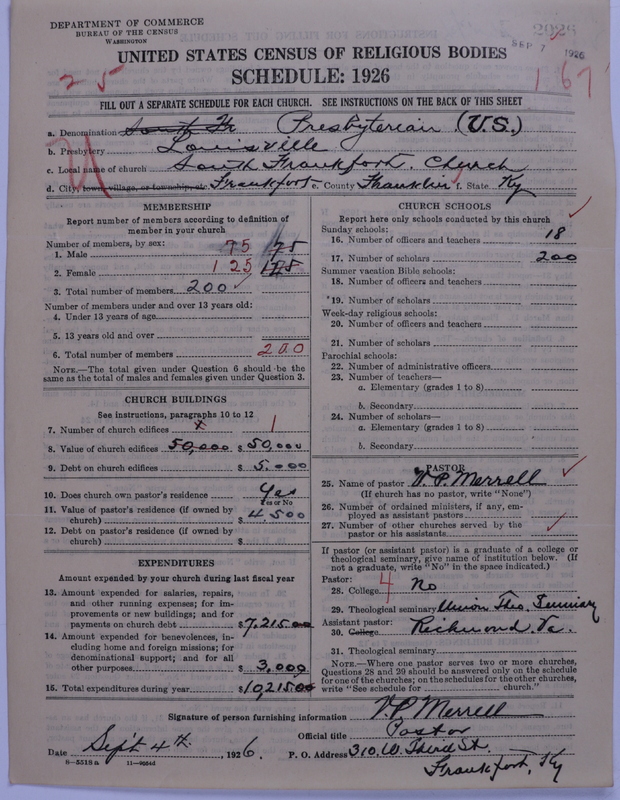 DEPARTMENT OF COMMERCE
BUREAU OF THE CENSUS
WASHINGTON
SEP 7 1926
UNITED STATES CENSUS OF RELIGIOUS BODIES
SCHEDULE: 1926
2 5
1 67
FILL OUT A SEPARATE SCHEDULE FOR EACH CHURCH. SEE INSTRUCTIONS ON THE BACK OF THIS SHEET
a. Denomination South Fr Presbyterian (U.S.)
b. Presbytery Louisville
c. Local name of church South Frankfort Church
d. City, town, village, or township, etc. Frankfort e. County Franklin f. State Ky
MEMBERSHIP
Report number of members according to definition of
member in your church
Number of members, by sex:
1. Male 75 75
2. Female 125
3. Total number of members 200
Number of members under and over 13 years old:
4. Under 13 years of age
5. 13 years old and over
6. Total number of members 200
NOTE.—The total given under Question 6 should be the
same as the total of males and females given under Question 3.
CHURCH BUILDINGS
See instructions, paragraphs 10 to 12
7. Number of church edifices 1
8. Value of church edifices 50,000 $ 50,000
9. Debt on church edifices $ 5.000
10. Does church own pastor's residence Yes
Yes or No
11. Value of pastor's residence (if owned by
church) $ 4.500
12. Debt on pastor's residence (if owned by
church) $
EXPENDITURES
Amount expended by your church during last fiscal year
13. Amount expended for salaries, repairs,
and other running expenses; for im-
provements or new buildings; and for
payments on church debt $7,215.00
14. Amount expended for benevolences, in-
cluding home and foreign missions; for
denominational support; and for all
other purposes $ 3.000
15. Total expenditures during year $10,215.00
CHURCH SCHOOLS
Report here only schools conducted by this church
Sunday schools:
16. Number of officers and teachers 18
17. Number of scholars 200
Summer vacation Bible schools:
18. Number of officers and teachers
19. Number of scholars
Week-day religious schools:
20. Number of officers and teachers
21. Number of scholars
Parochial schools:
22. Number of administrative officers
23. Number of teachers—
a. Elementary (grades 1 to 8)
b. Secondary
24. Number of scholars—
a. Elementary (grades 1 to 8)
b. Secondary
PASTOR
25. Name of pastor V. P. Merrell
(If church has no pastor, write "None")
26. Number of ordained ministers, if any, em-
ployed as assistant pastors
27. Number of other churches served by the
pastor or his assistants
If pastor (or assistant pastor) is a graduate of a college or
theological seminary, give name of institution below. (If
not a graduate, write "No" in the space indicated.)
Pastor:
28. College 4 No
29. Theological seminary Union Theo. Seminary
Assistant pastor:
30. College Richmond, Va.
31. Theological seminary
NOTE.—Where one pastor serves two or more churches,
Questions 28 and 29 should be answered only on the schedule
for one of the churches; on the schedules for the other churches,
write "See schedule for church."
Signature of person furnishing information V. P. Merrell
Official title Pastor
Date Sept 4th, 1926. P. O. Address 310 W. Third St.
Frankfort, Ky
8-5518 a